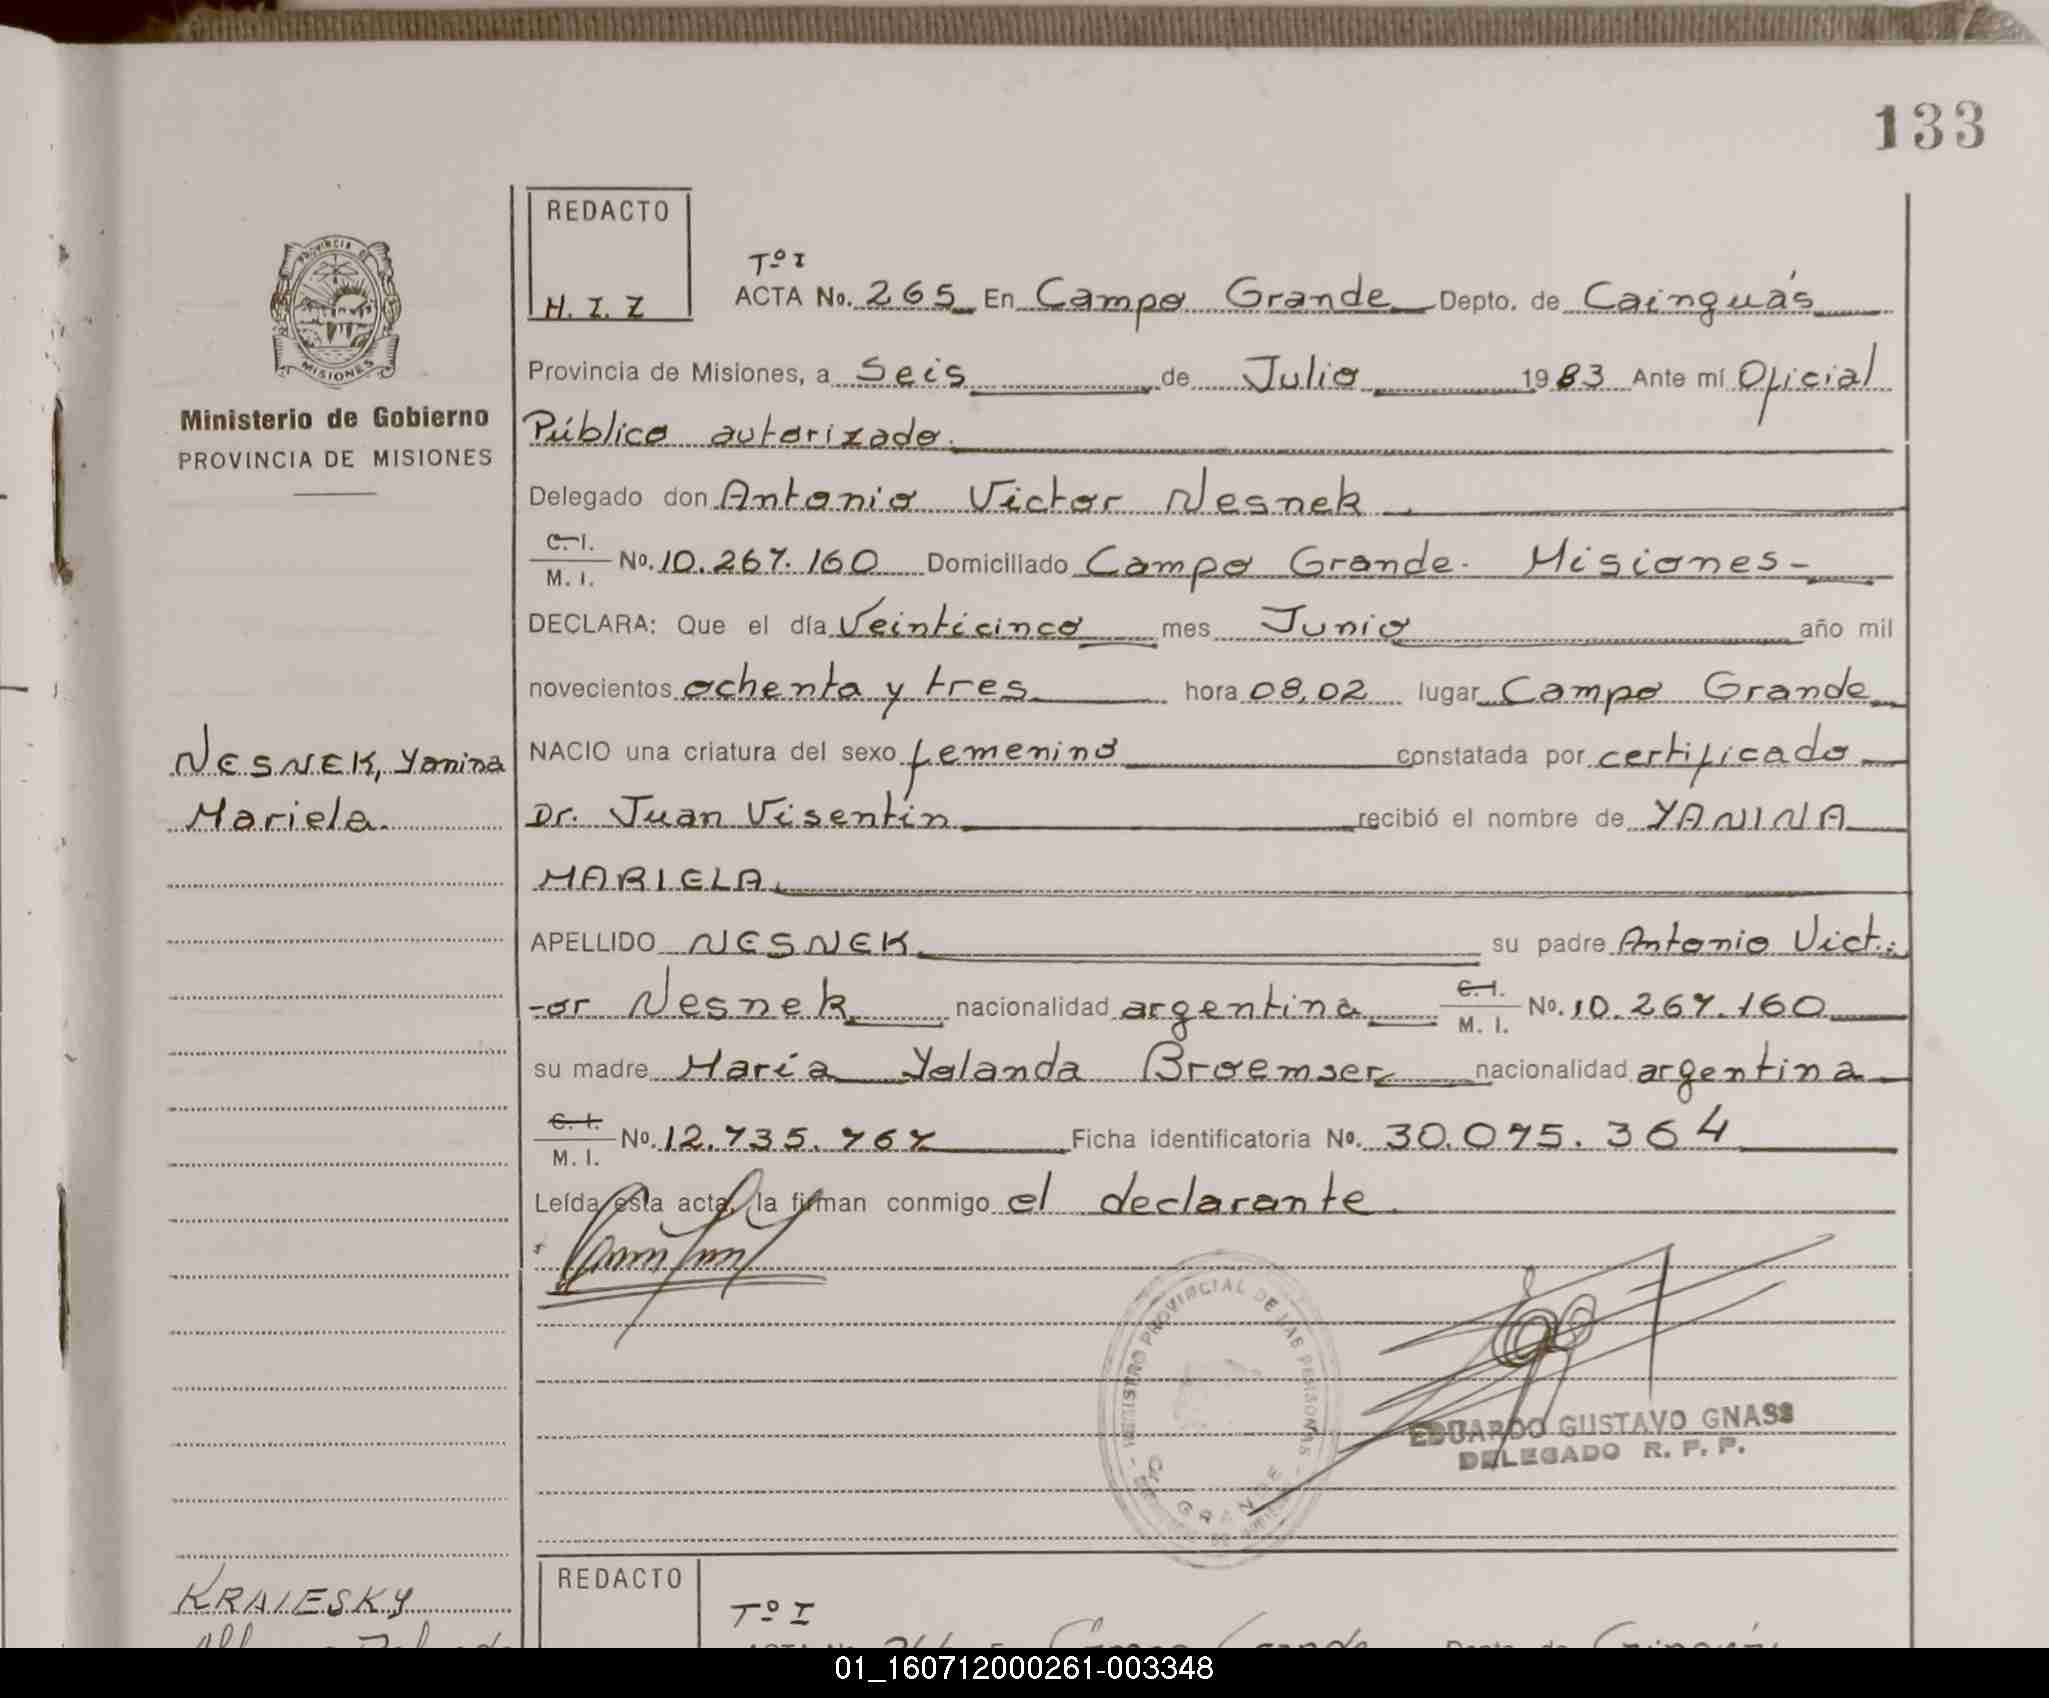 133
REDACTO
H. I. Z
Tº I
ACTA No. 265 En Campo Grande Depto. de Cainguás
Provincia de Misiones, a Seis de Julio 1983 Ante mí Oficial
Público autorizado.
Delegado don Antonio Victor Nesnek
C. I. M. I. No. 10.267.160 Domiciliado Campo Grande. Misiones-
DECLARA: Que el día Veinticinco mes Junio año mil
novecientos ochenta y tres hora 08,02 lugar Campo Grande
NACIO una criatura del sexo femenino constatada por certificado
Dr. Juan Visentín recibió el nombre de YANINA
MARIELA
APELLIDO NESNEK su padre Antonio Vict.
-or Nesnek nacionalidad argentina C. I. M. I. No. 10.267.160
su madre María Yolanda Broemser nacionalidad argentina
C. I. M. I. No. 12.735.767 Ficha identificatoria No. 30.075.364
Leída esta acta, la firman conmigo el declarante.
REGISTRO PROVINCIAL DE LAS PERSONAS
GRANDE
EDUARDO GUSTAVO GNASS
DELEGADO R. P. P.
PROVINCIA DE
MISIONES
Ministerio de Gobierno
PROVINCIA DE MISIONES
NESNEK, Yanina
Mariela.
KRAIESKY
REDACTO
Tº I
01_160712000261-003348